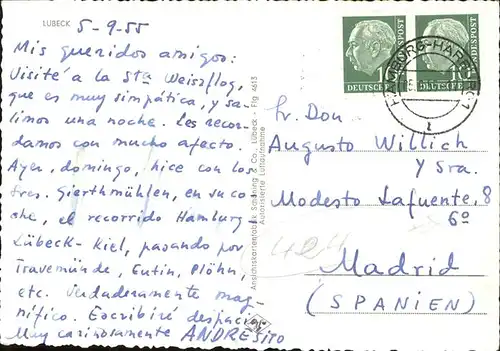 LÜBECK
5-9-55
Mis queridos amigos:
Visité a la Sta Weissflog,
que es muy simpática, y sa-
limos una noche. Les recor-
damos con mucho afecto.
Ayer, domingo, hice con los
tres. Gierthmühlen, en su co-
che, el recorrido Hamburg-
Lübeck-Kiel, pasando por
Travemünde, Eutin, Plöhn,
etc. Verdaderamente mag-
nífico. Escribiré despacio.
Muy cariñosamente ANDRESITO
Ansichtskartenfabrik Schöning & Co., Lübeck - Flg 4613
Autorisierte Luftaufnahme
DEUTSCHE BUNDESPOST
DEUTSCHE BUNDESPOST
10
HAMBURG-HARBURG
Hr. Don
Augusto Willich
y Sra.
Modesto Lafuente, 8
6º
Madrid
(SPANIEN)